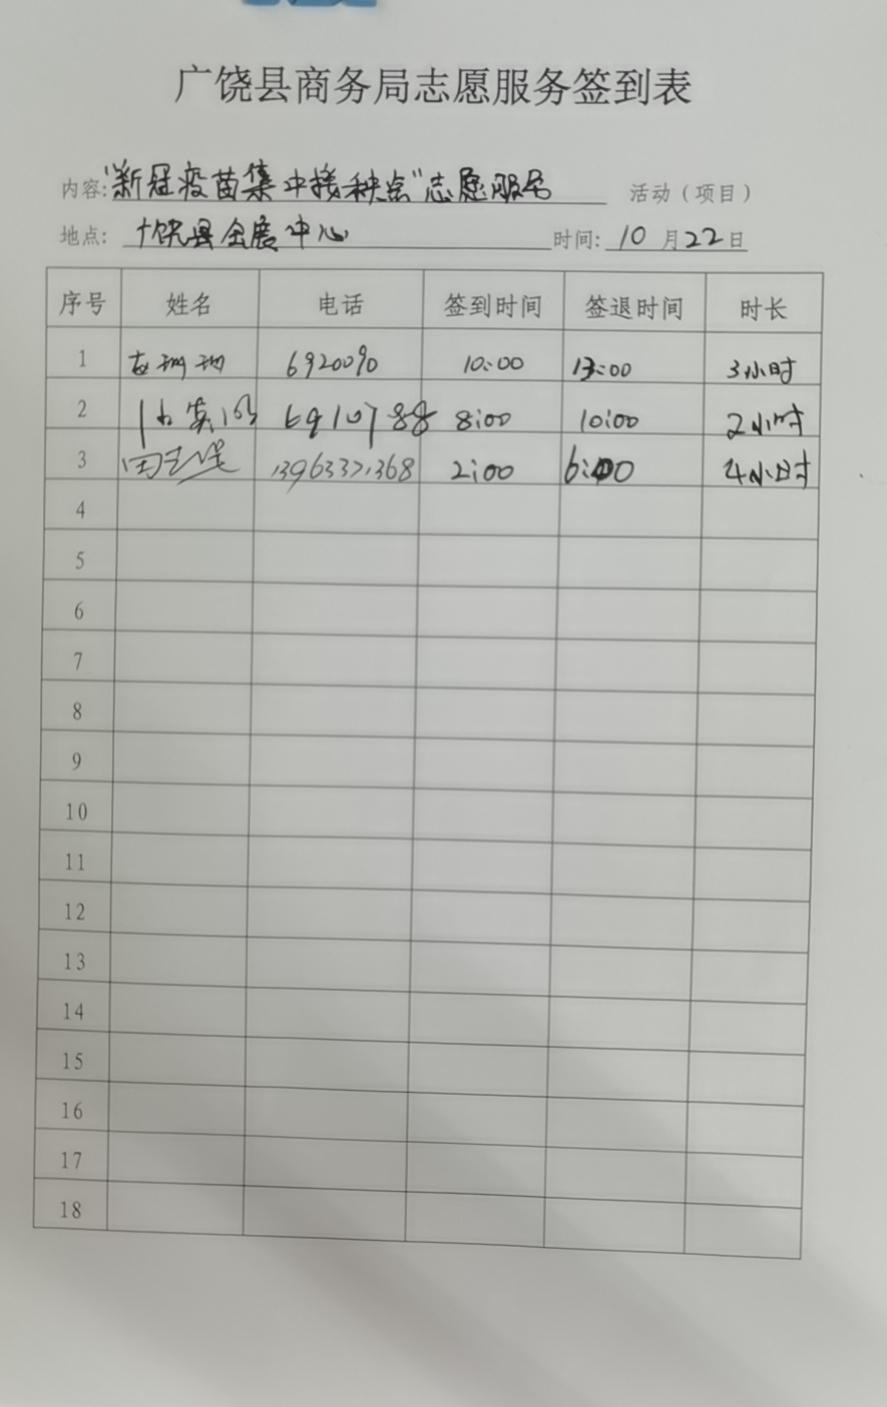 广饶县商务局志愿服务签到表
内容:"新冠疫苗集中接种点"志愿服务 活动（项目）
地点: 广饶县会展中心 时间: 10 月 22 日
序号 姓名 电话 签到时间 签退时间 时长
1 珊珊 6920090 10:00 13:00 3小时
2 6910788 8:00 10:00 2小时
3 13963371368 2:00 6:00 4小时
4
5
6
7
8
9
10
11
12
13
14
15
16
17
18